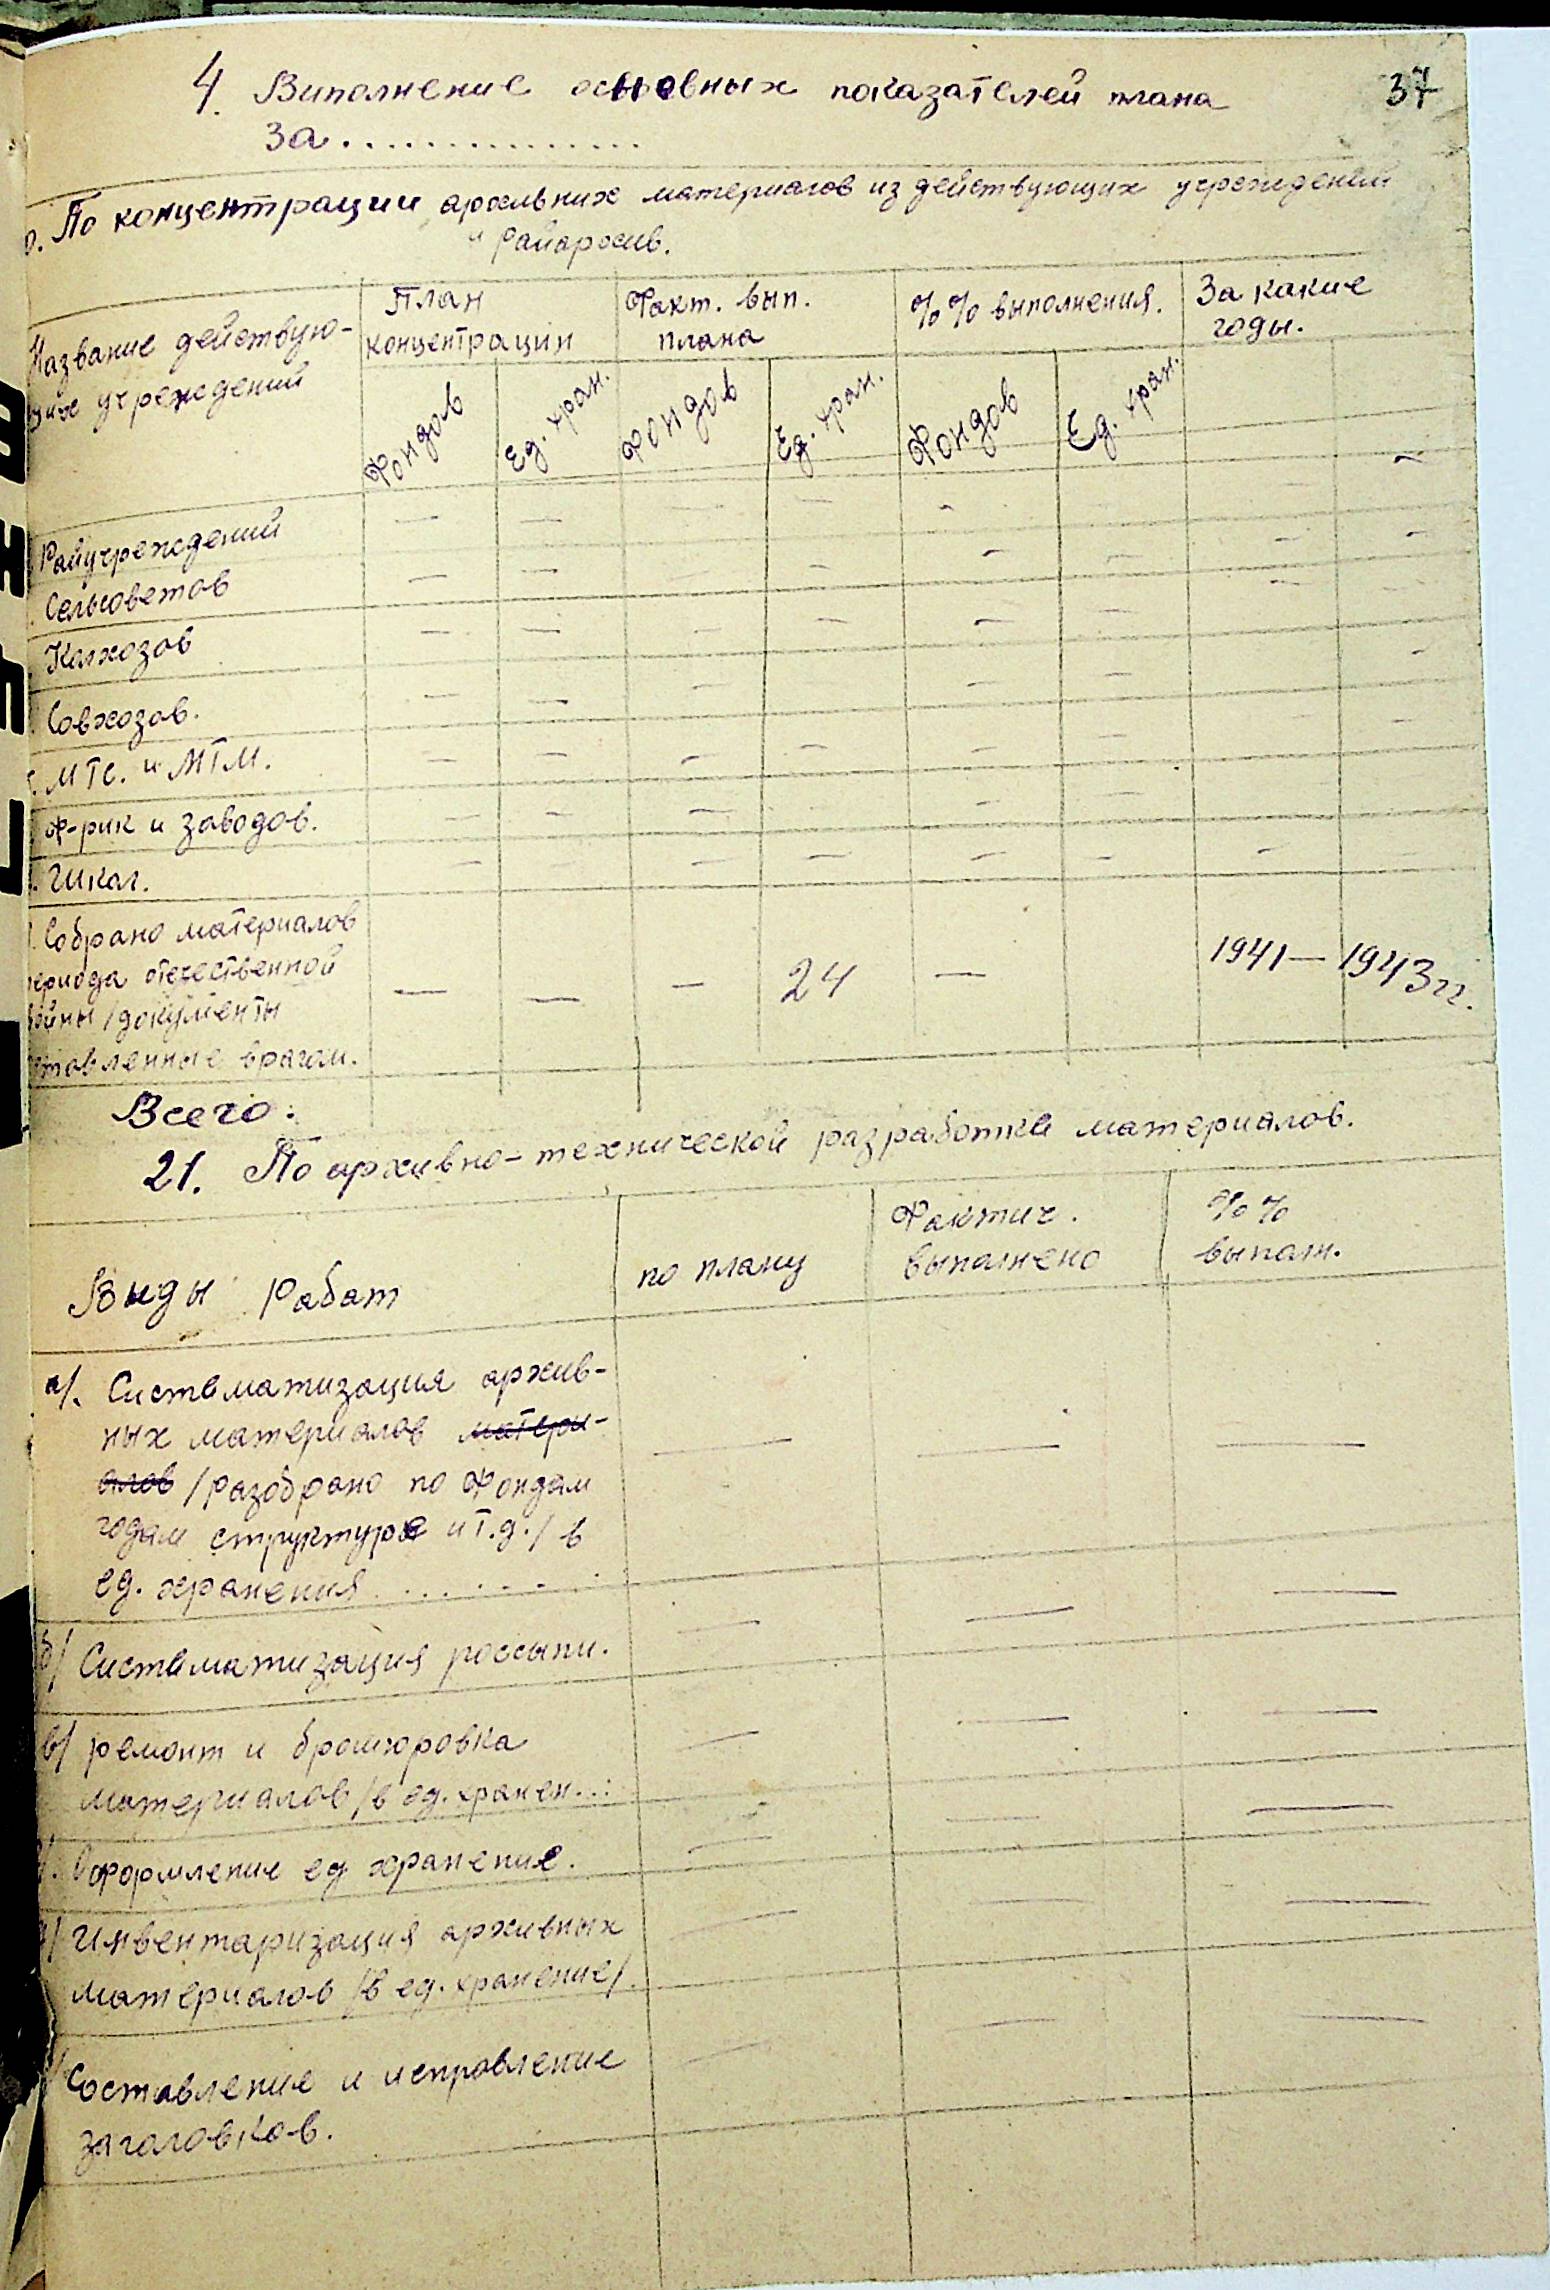 37
4. Виполнение основных показателей плана
за...............
0. По концентрации архивних материалов из действующих учреждений
и райархив.
Название действую-
щих учреждений
План
концентрации
Факт. вып.
плана
%% выполнения.
За какие
годы.
Фондов Ед. хран. Фондов Ед. хран. Фондов Ед. хран.
Райучреждений — — — — — — — —
Сельсоветов — — — — — — — —
Колхозов — — — — — — —
Совхозов. — — — — — —
МТС. и МТМ. — — — — — — — —
Ф-рик и заводов. — — — — —
Школ. — — — — — —
Собрано материалов
периода отечественной
войны /документы
оставленные врагом. — — — 24 — 1941 — 1943 гг.
Всего:
21. По архивно-технической разработке материалов.
Виды Работ
по плану
Фактич.
выполнено
%%
выполн.
а/. Систематизация архив-
ных материалов матери-
алов /разобрано по Фондам — — —
годам структуре и т.д./ в
ед. хранения........
б/ Систематизация россыпи. — — —
в/ ремонт и брошюровка — — —
материалов /в ед. хранен..:
Оформление ед хранение. — — —
д/ Инвентаризация архивных — — —
материалов /в ед. хранение/.
Составление и исправление — — —
заголовков.